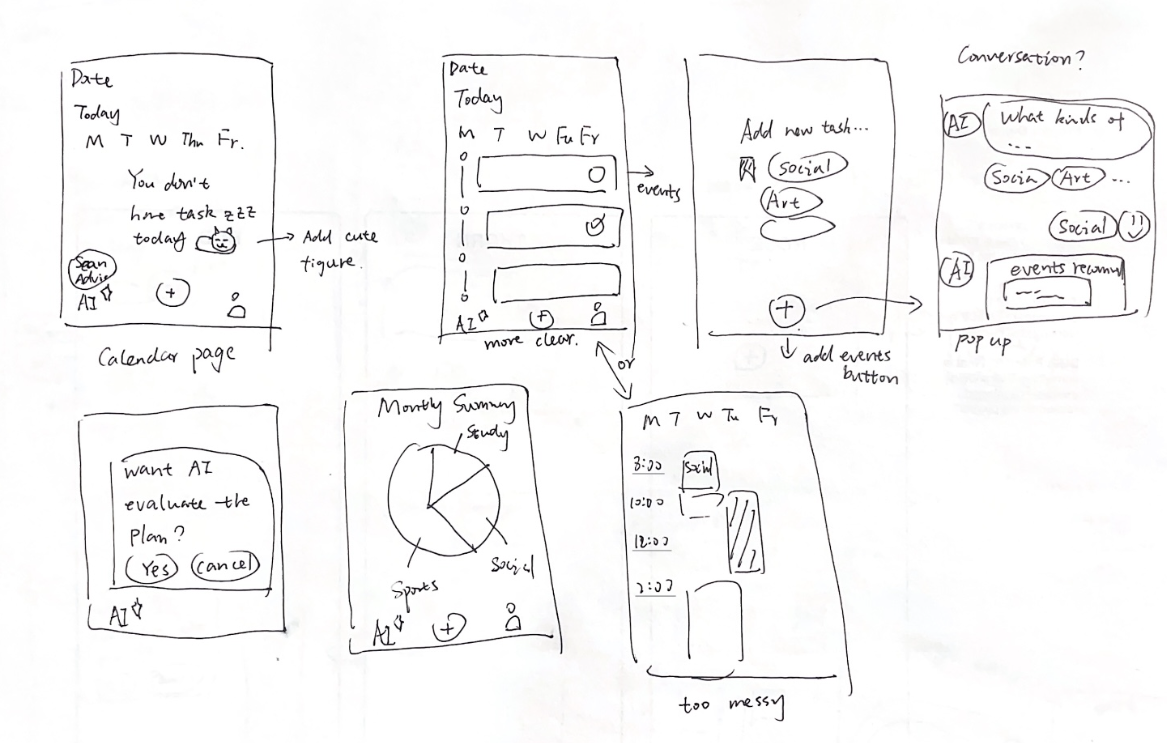 Date
Today
M T W Thu Fr.
You don't
have task zzz
today
→ Add cute
figure.
AI
+
Calendar page
Date
Today
M T W Fr
→ events
AI
+
more clear.
or
Add new task...
Social
Art
+
add events
button
Conversation?
AI
What kinds of
...
Socia Art ...
Social
AI
events
pop up
want AI
evaluate the
Plan?
Yes cancel
AI
Monthly Summary
Study
Social
Sports
AI
+
M T W Tu Fr
8:00
Social
10:00
12:00
2:00
too messy